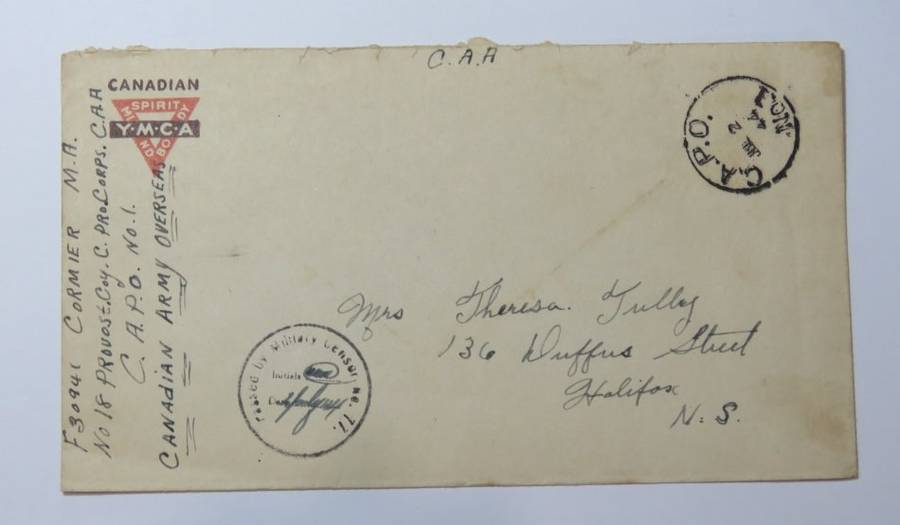 C.A.A
CANADIAN
SPIRIT
MIND
BODY
Y·M·C·A
F30941 CORMIER M.A.
No 18 PROVOST. Coy. C. PRO. CORPS. C.A.A
C.A.P.O. No. 1.
CANADIAN ARMY OVERSEAS
C.A.P.O.
2
44
NO. 1
Mrs Theresa. Tully
136 Duffus Street
Halifax
N. S.
Passed by Military Censor No. 77.
Initials
Date